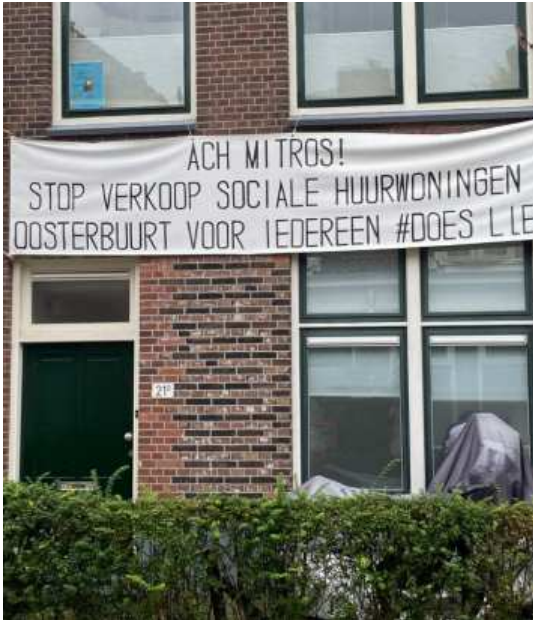 ACH MITROS!
STOP VERKOOP SOCIALE HUURWONINGEN
OOSTERBUURT VOOR IEDEREEN #DOES LIE